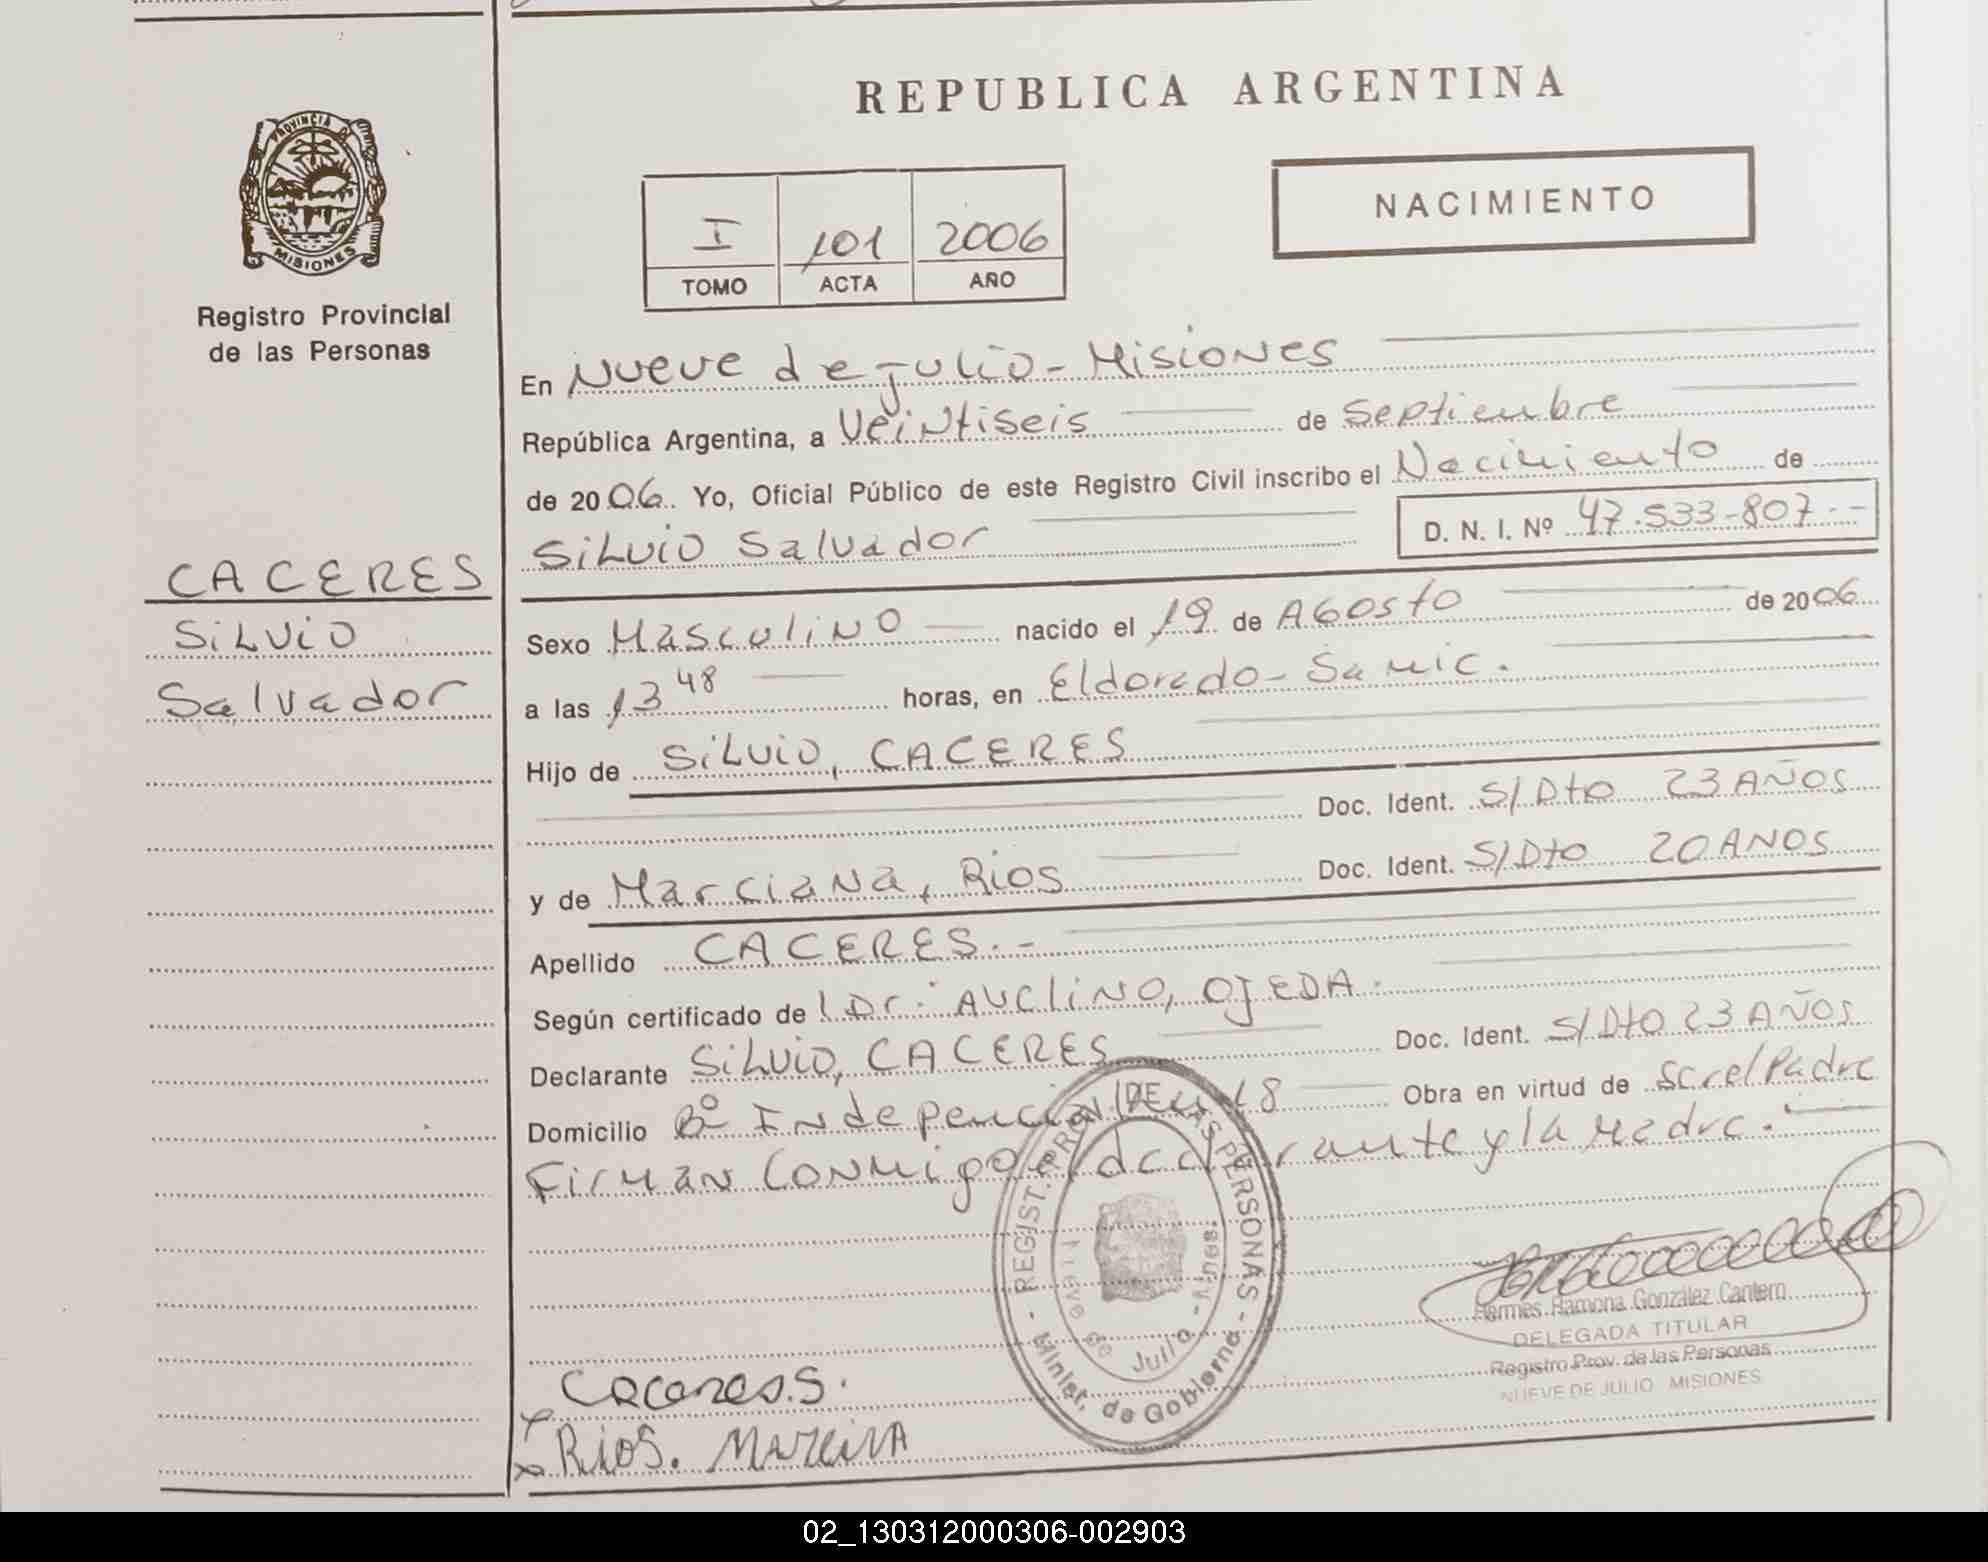 PROVINCIA DE
MISIONES
Registro Provincial
de las Personas
CACERES
SiLViO
Salvador
REPUBLICA ARGENTINA
I 101 2006
TOMO ACTA AÑO
NACIMIENTO
En Nueve de Julio - Misiones
República Argentina, a Veintiseis de Septiembre
de 2006. Yo, Oficial Público de este Registro Civil inscribo el Nacimiento de
SiLviO Salvador D. N. I. Nº 47.533-807.-
Sexo Masculino nacido el 19 de AGosto de 2006
a las 13 48 horas, en Eldorado - Samic.
Hijo de SiLviO, CACERES
Doc. Ident. S/Dto 23 AÑOS
y de Marciana, Rios Doc. Ident. S/Dto 20 AÑOS
Apellido CACERES.-
Según certificado de Dr. AVCLiNO, OJEDA.
Declarante SiLviO, CACERES Doc. Ident. S/Dto 23 AÑOS
Domicilio Bº Independencia 18 Obra en virtud de Ser el Padre
Firman Conmigo el declarante y la Madre.
- REGIST. PROV. DE LAS PERSONAS -
Minist. de Gobierno
Nueve de Julio - Mnes.
Hermes Ramona González Cantero
DELEGADA TITULAR
Registro Prov. de las Personas
NUEVE DE JULIO MISIONES
Caceres.S.
x Rios.
02_130312000306-002903